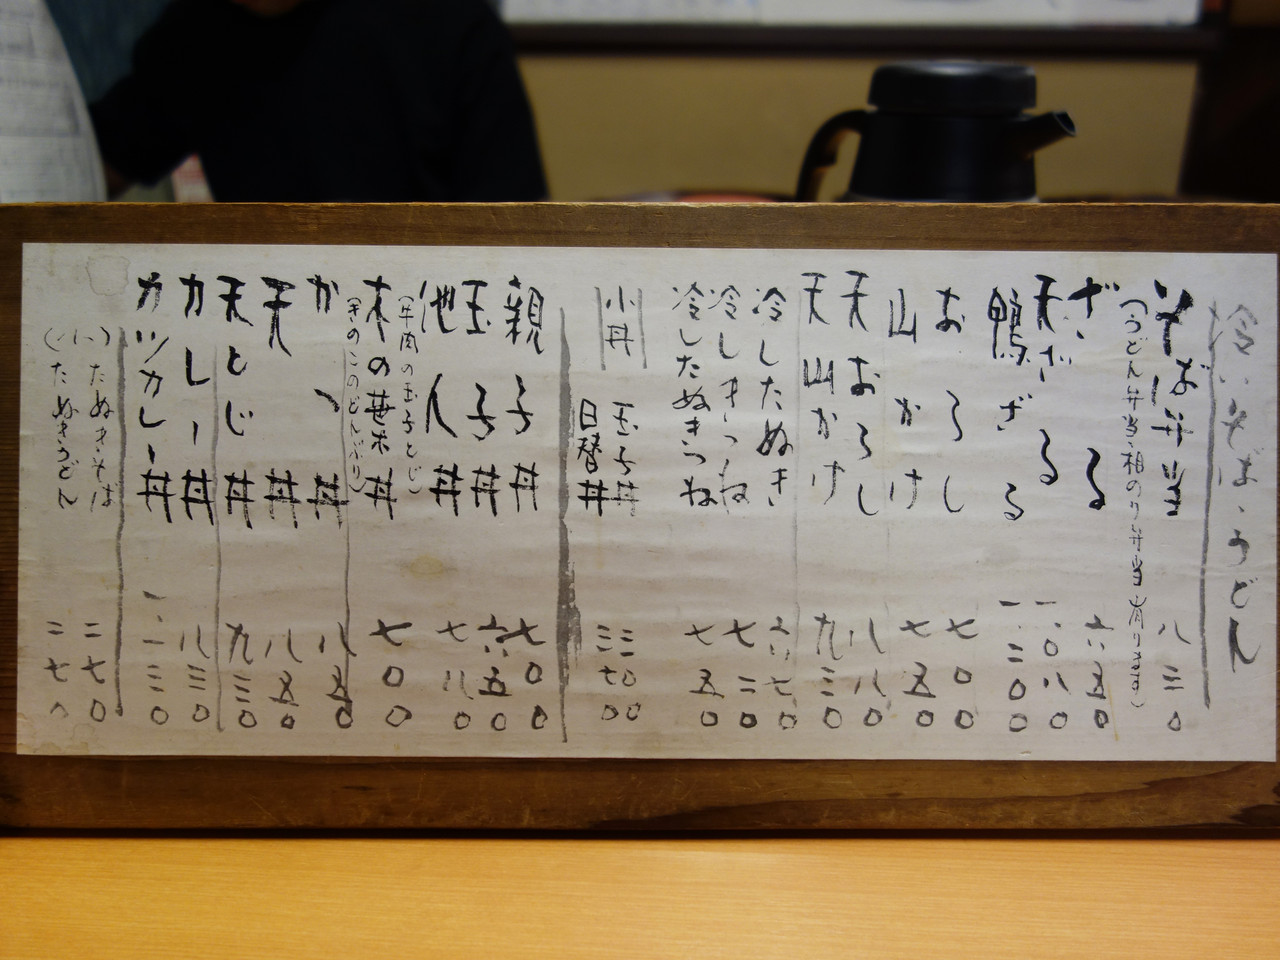 冷いそば、うどん
そば弁当 八三〇
(うどん弁当、相のり弁当有ります)
ざる 六五〇
天ざる 一、〇八〇
鴨ざる 一、二〇〇
おろし 七〇〇
山かけ 七五〇
天おろし 八八〇
天山かけ 九三〇
冷したぬき 六七〇
冷しきつね 七二〇
冷したぬきつね 七五〇
小丼
玉子丼 三〇〇
日替丼 三七〇
親子丼 七〇〇
玉子丼 六五〇
他人丼 七八〇
(牛肉の玉子とじ)
木の葉丼 七〇〇
(きのこのどんぶり)
かつ丼 八五〇
天丼 八五〇
天とじ丼 九三〇
カレー丼 八三〇
カツカレー丼 一、一三〇
(小)たぬきそば 二七〇
(〃)たぬきうどん 二七〇